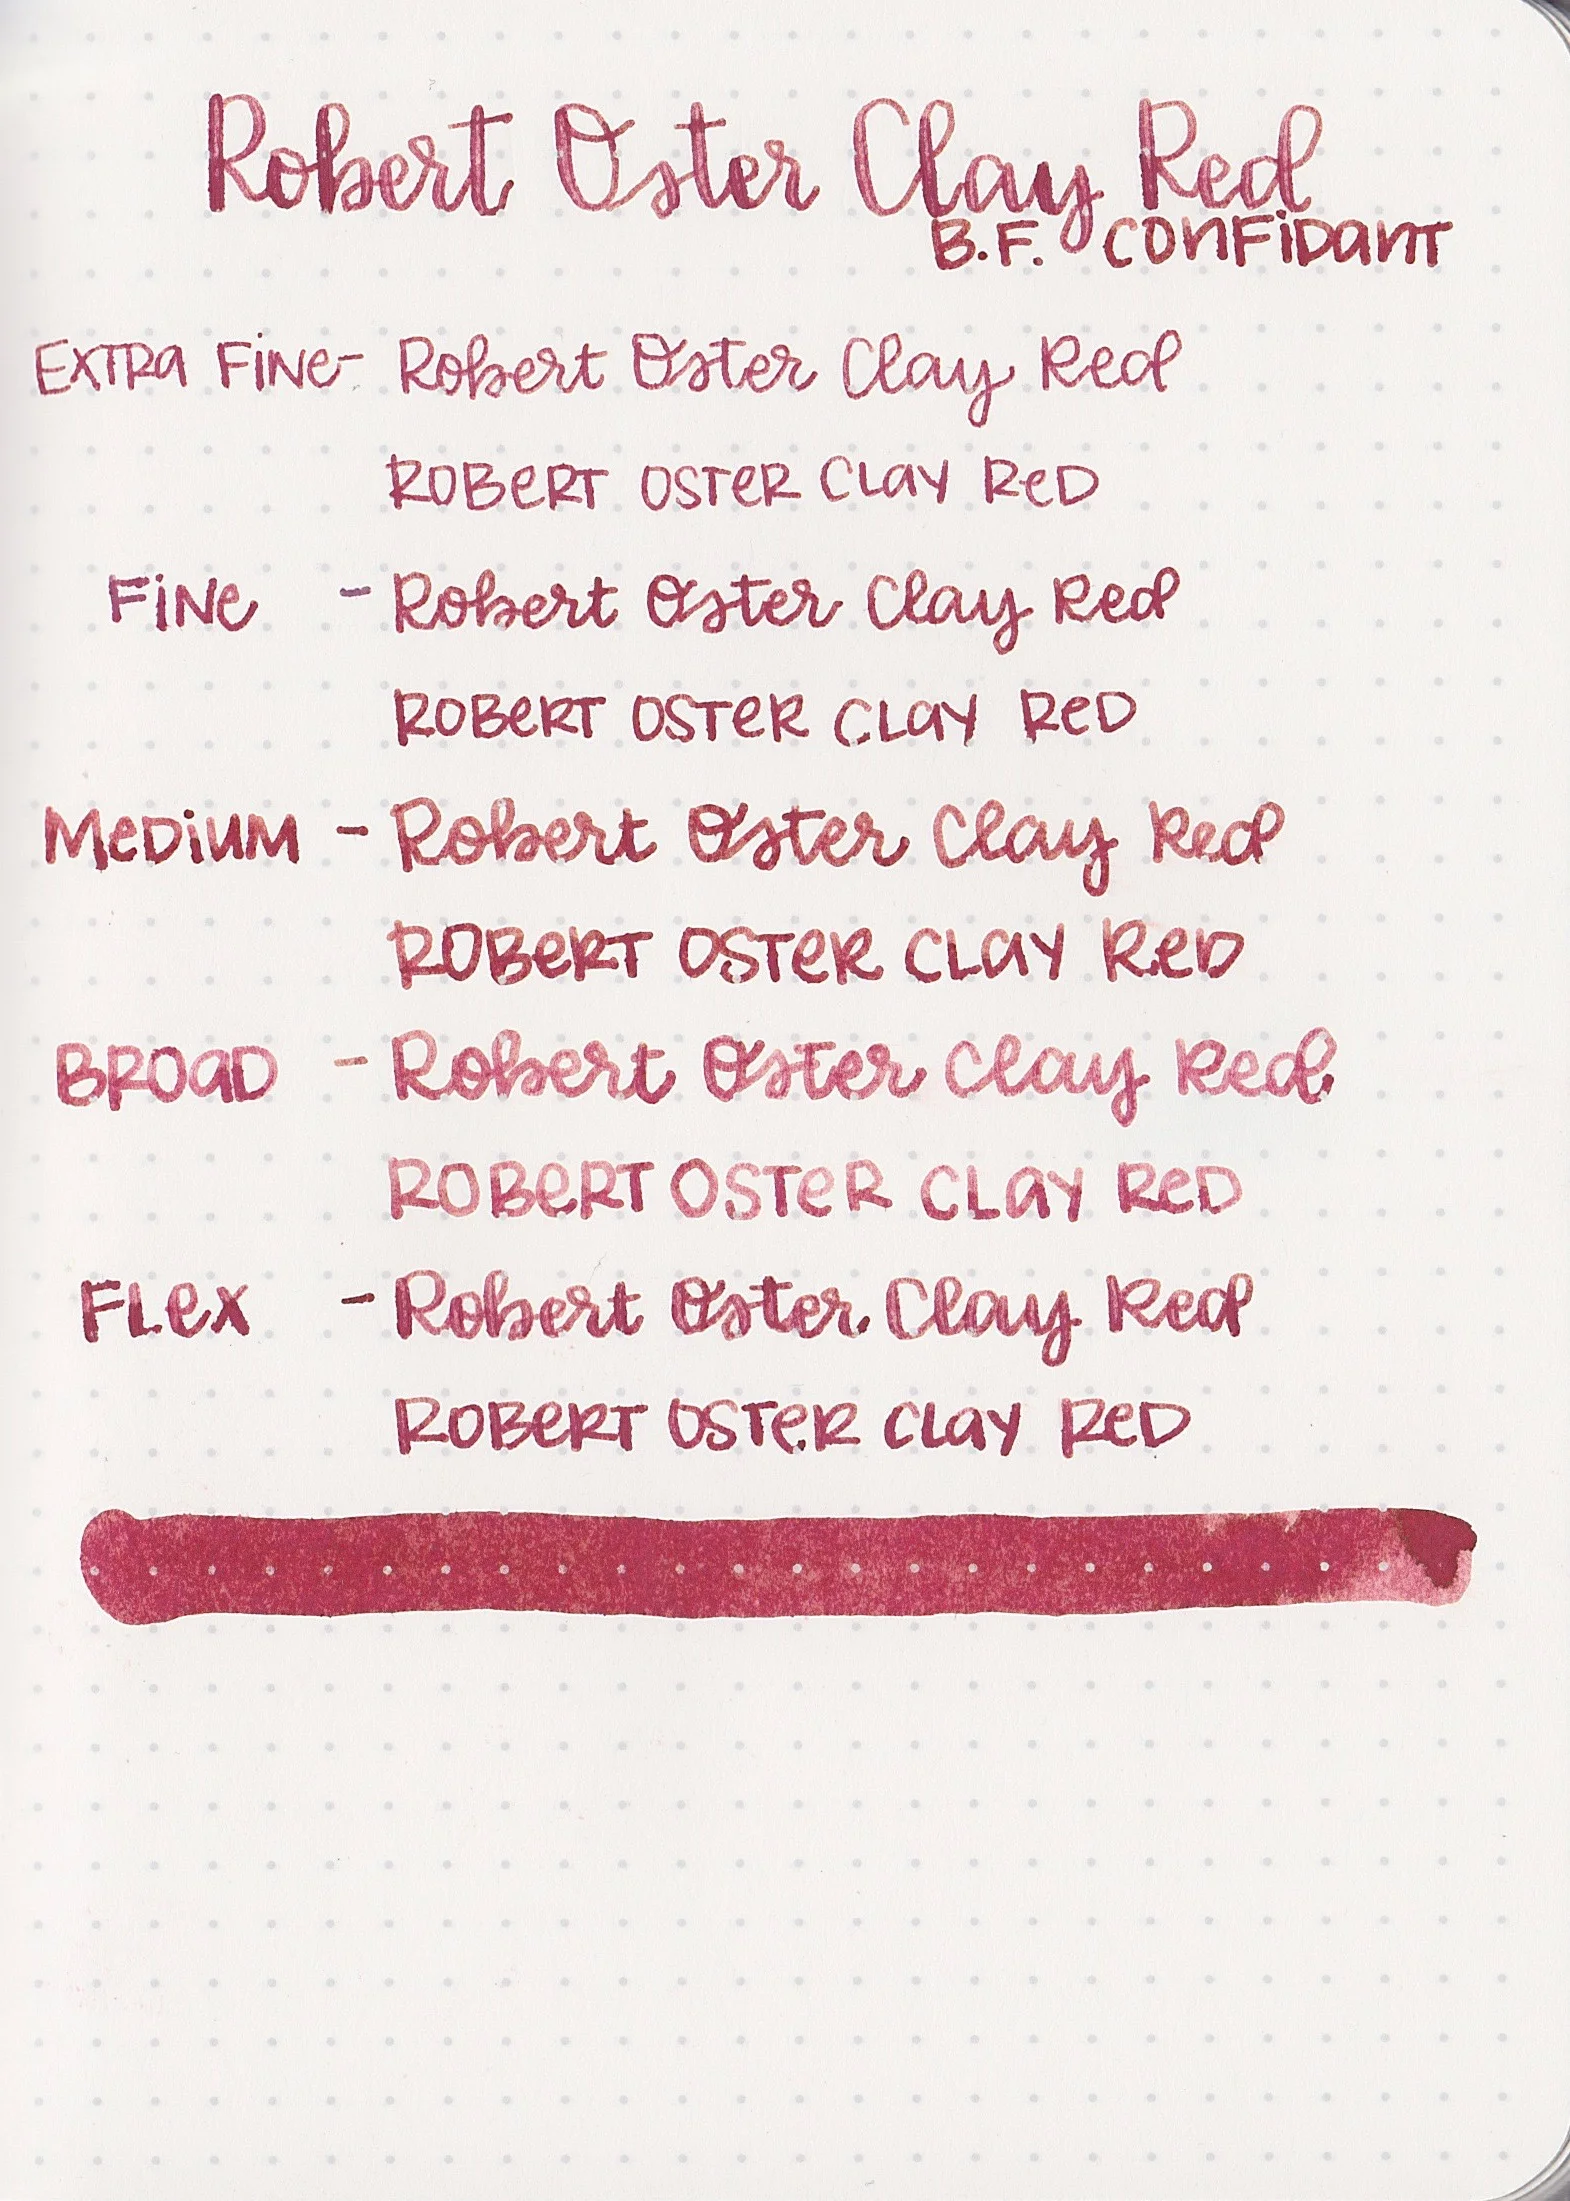 Robert Oster Clay Red
B.F. CONFIDANT
EXTRA FINE- Robert Oster Clay Red
ROBERT OSTER CLAY RED
FINE - Robert Oster Clay Red
ROBERT OSTER CLAY RED
MEDIUM - Robert Oster Clay Red
ROBERT OSTER CLAY RED
BROAD - Robert Oster Clay Red
ROBERT OSTER CLAY RED
FLEX - Robert Oster Clay Red
ROBERT OSTER CLAY RED